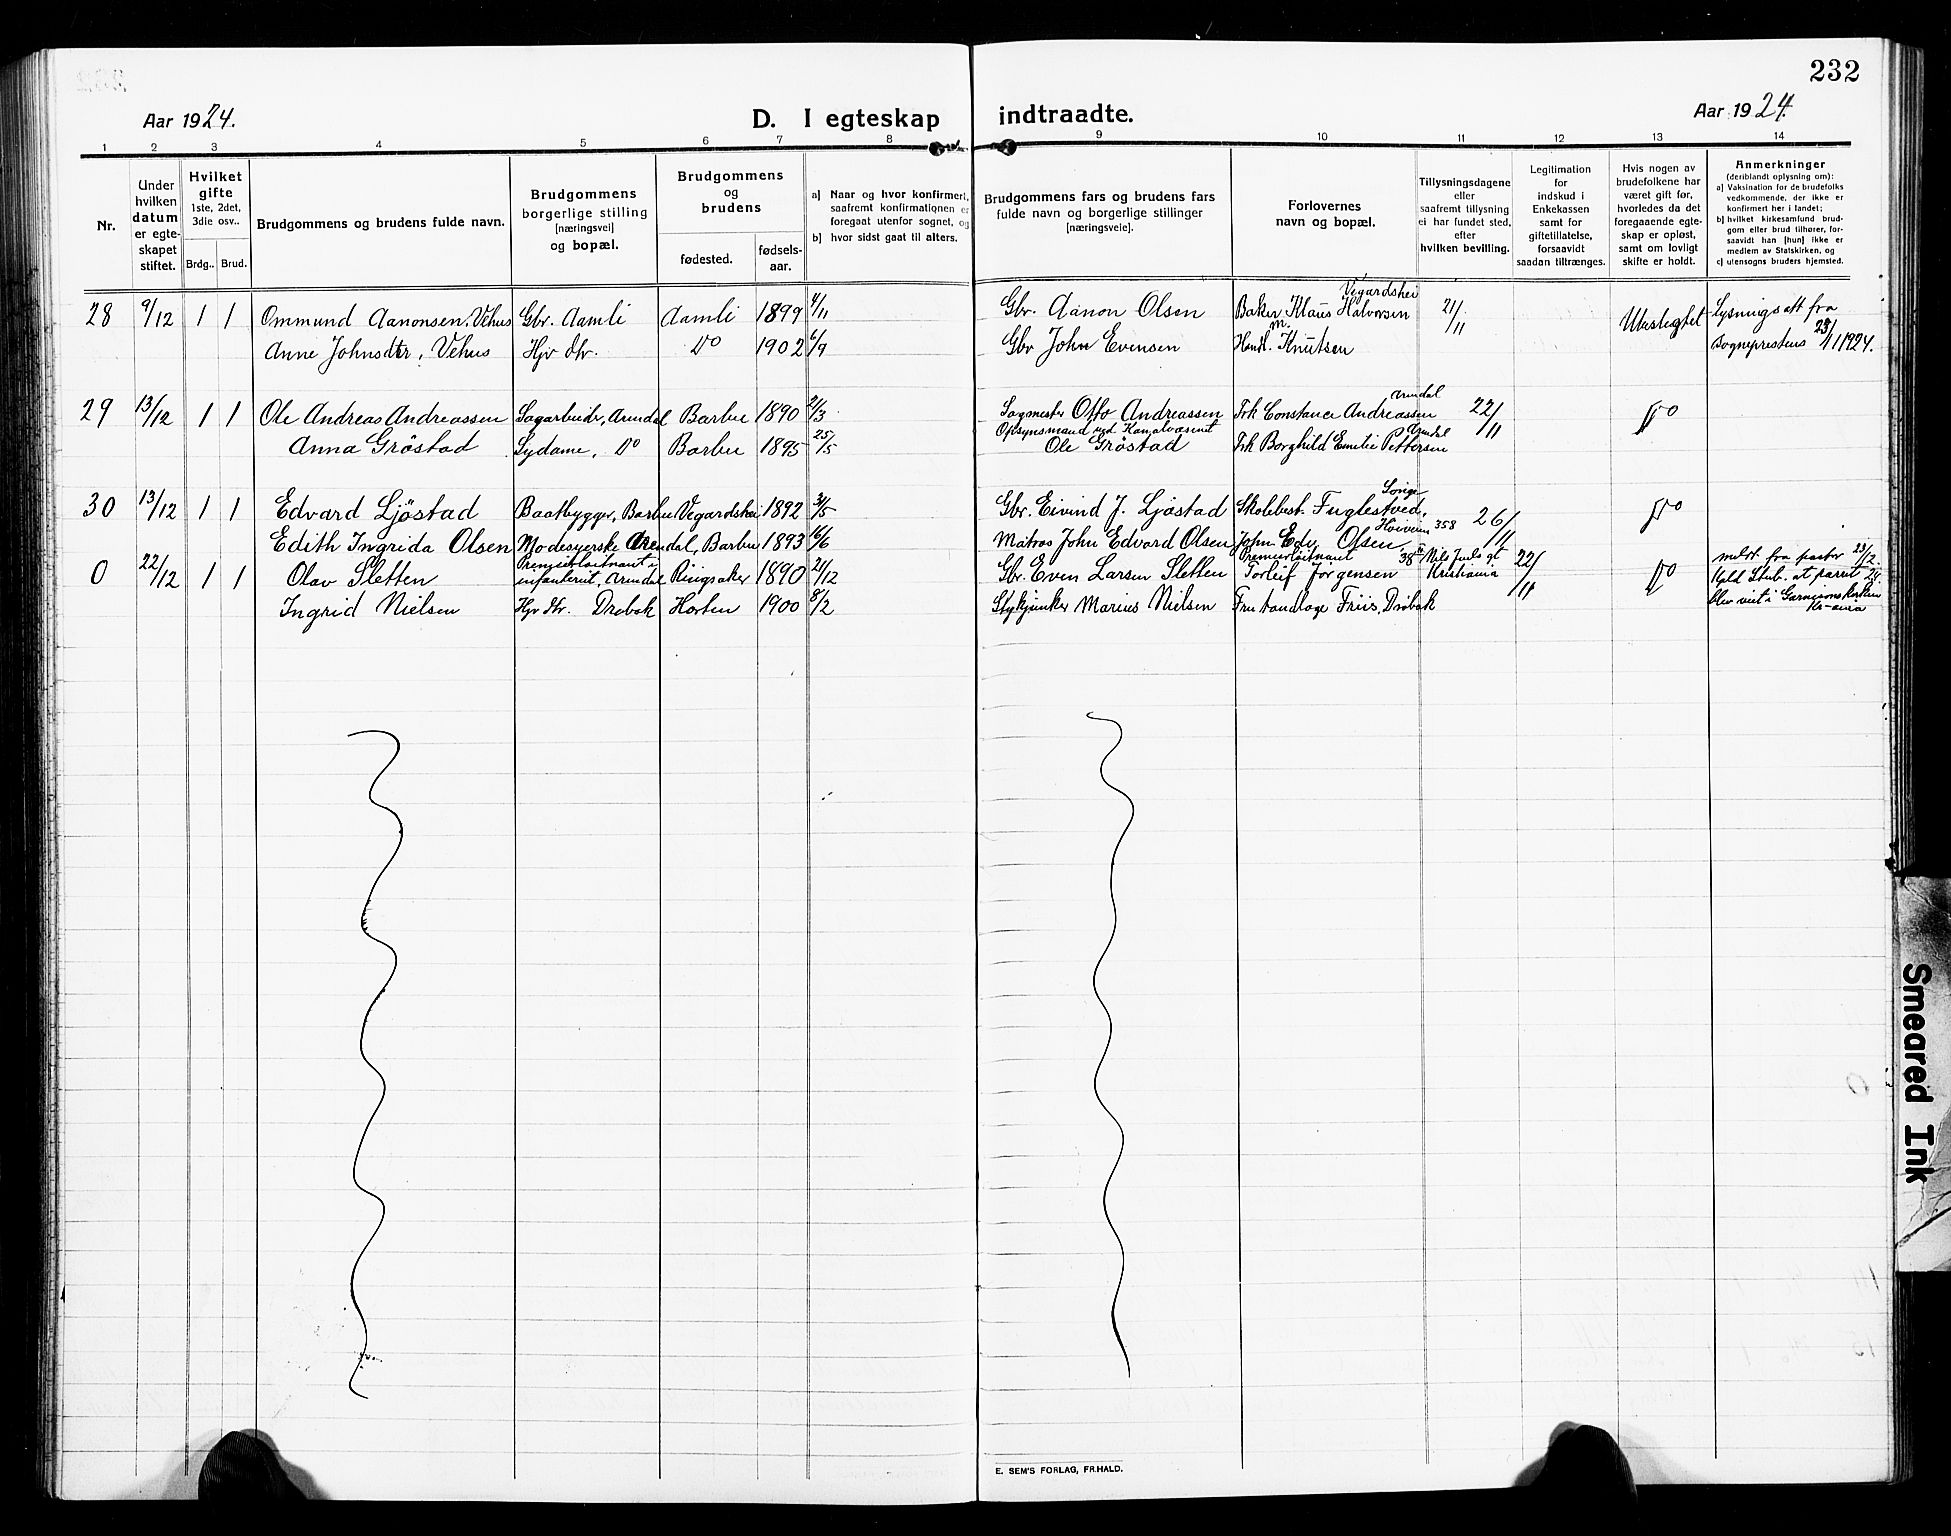 232
Aar 1924.
D. I egteskap indtraadte.
Aar 1924.
1 2 3 4 5 6 7 8 9 10 11 12 13 14
Nr.
Under
hvilken
datum
er egte-
skapet
stiftet.
Hvilket
gifte
1ste, 2det,
3die osv..
Brdg.. Brud.
Brudgommens og brudens fulde navn.
Brudgommens
borgerlige stilling
[næringsvei]
og bopæl.
Brudgommens
og
brudens
fødested.
fødsels-
aar.
a) Naar og hvor konfirmert,
saafremt konfirmationen e
foregaat utenfor sognet, og
b) hvor sidst gaat til alters.
Brudgommens fars og brudens fars
fulde navn og borgerlige stillinger
[næringsveie].
Forlovernes
navn og bopæl.
Tillysningsdagene
eller
saafremt tillysning
ei har fundet sted,
efter
hvilken bevilling.
Legitimation
for
indskud i
Enkekassen
samt for
giftetillatelse,
forsaavidt
saadan tiltrænges.
Hvis nogen av
brudefolkene har
været gift før,
hvorledes da det
foregaaende egte-
skap er opløst,
samt om lovligt
skifte er holdt.
Anmerkninger
(deriblandt oplysning om):
a) Vaksination for de brudefolks
vedkommende, der ikke er
konfirmert her i landet;
b) hvilket kirkesamfund brud-
gom eller brud tilhører, for-
saavidt han [hun] ikke er
medlem av Statskirken, og
c) utensogns bruders hjemsted.
28 9/12 1 1 Ommund Aanonsen, Vehus Gbr. Aamli Aamli 1899 4/11 Gbr. Aanon Olsen Baker Klaus Halvorsen Vegardshei 21/11 Ubeslegtet Lysningsatt fra
Anne Johnsdtr, Vehus Hjv dtr. Do 1902 6/9 Gbr John Evensen Handl.m. Knutsen Sogneprestens 23/11 1924.
29 13/12 1 1 Ole Andreas Andreassen Sagarbeidr, Arendal Barbu 1890 2/3 Sagmester Otto Andreassen Frk Constance Andreassen Arendal 22/11 Do
Anna Gröstad Sydame, Do Barbu 1895 25/5 Opsynsmand ved Kanalvæsenet Ole Gröstad Frk Borghild Emelie Pettersen Arendal
30 13/12 1 1 Edvard Ljöstad Baatbygger, Barbu Vegardshei 1892 31/5 Gbr. Eivind J. Ljöstad Skolebest. Fuglestved, Songe 26/11 Do
Edith Ingrida Olsen Modesyerske Arendal, Barbu 1893 16/6 Matros John Edvard Olsen John Edv. Olsen
0 22/12 1 1 Olav Sletten Premierløitnant i infanteriet, Arendal Ringsaker 1890 21/12 Gbr. Even Larsen Sletten Premierløitnant Torleif Jörgensen Nils Juels gt 38 Kristiania 22/11 Do
Ingrid Nielsen Hjv dtr. Drøbak Horten 1900 8/2 Stykjunker Marius Nielsen Fru tandlæge Friis, Drøbak
meldt. fra pastor 23/12.
Kald Stub. at parret 24.
blev viet i Garnisons kirken
Kr-ania
E. SEM'S FORLAG, FR.HALD.
Smeared Ink